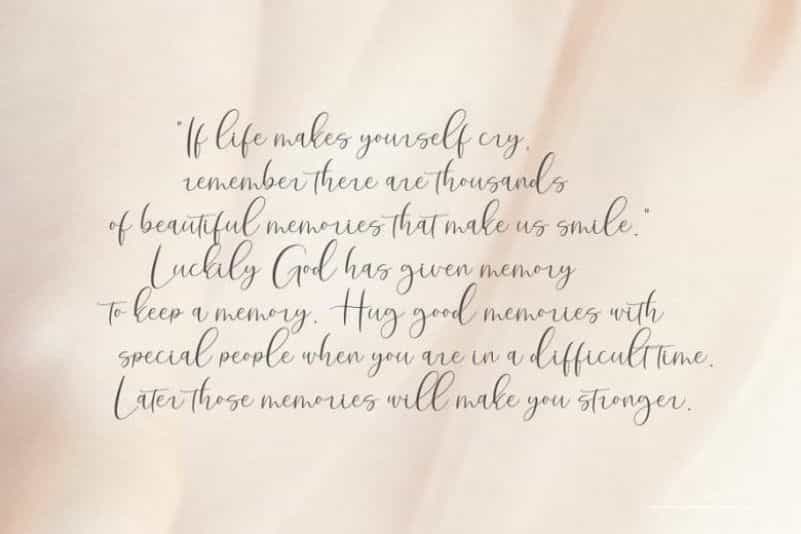 "If life makes yourself cry,
remember there are thousands
of beautiful memories that make us smile."
Luckily God has given memory
to keep a memory. Hug good memories with
special people when you are in a difficult time.
Later those memories will make you stronger.